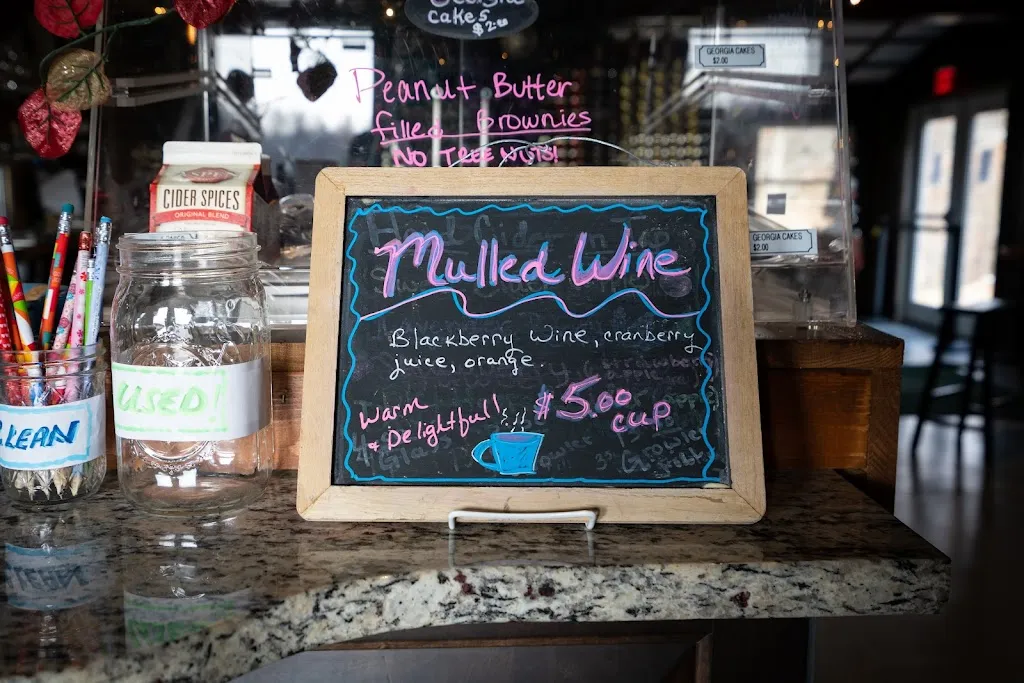 cakes
$2.00
GEORGIA CAKES
$2.00
Peanut Butter
filled brownies
NO TREE NUTS!
CIDER SPICES
ORIGINAL BLEND
GEORGIA CAKES
$2.00
Mulled Wine
Blackberry Wine, cranberry
juice, orange.
Warm
& Delightful!
$5.00
cup
CLEAN
USED!